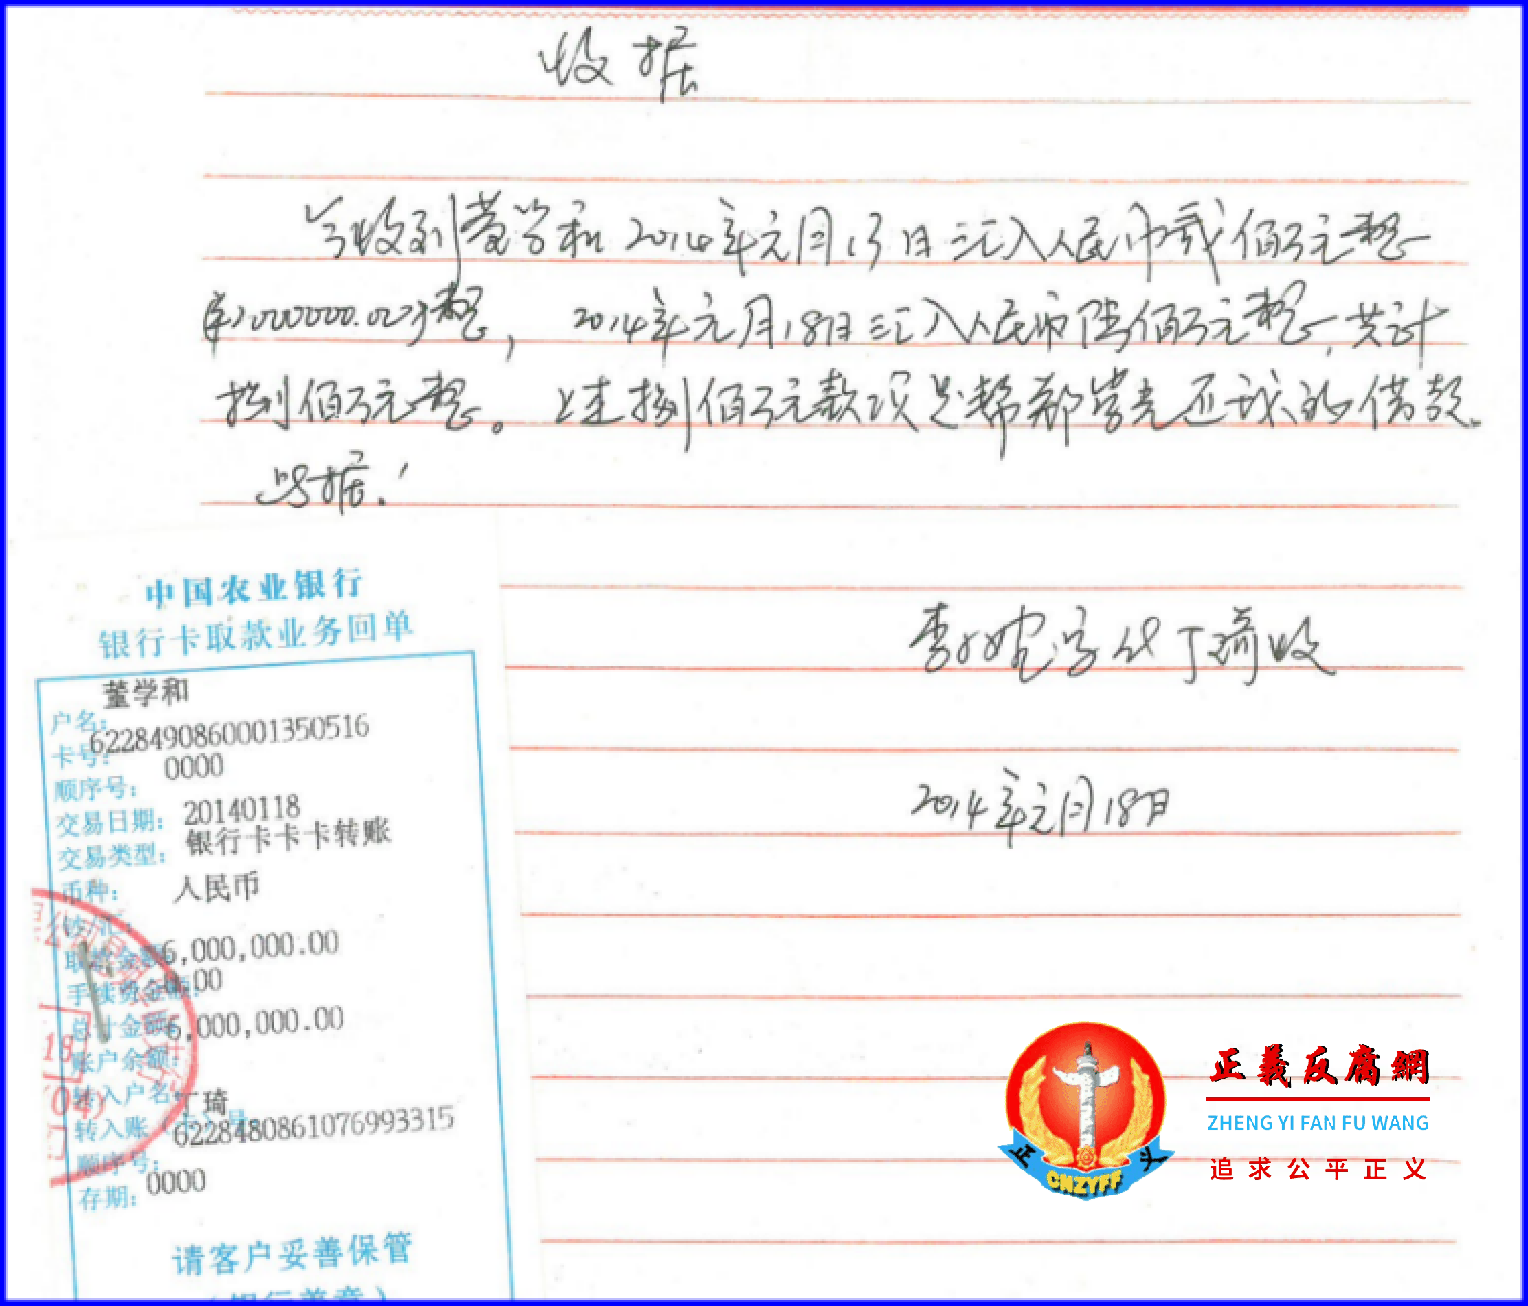 收据
今收到董学和2014年元月13日汇入人民币贰佰万元整
¥2000000.00元整, 2014年元月18日汇入人民币陆佰万元整,共计
捌佰万元整。上述捌佰万元款项是帮郑学光还我的借款.
此据!
代丁琦收
2014年元月18日
中国农业银行
银行卡取款业务回单
户名: 董学和
卡号: 6228490860001350516
顺序号: 0000
交易日期: 20140118
交易类型: 银行卡卡卡转账
币种: 人民币
取款金额: 6,000,000.00
手续费金额: 0.00
总计金额: 6,000,000.00
账户余额:
转入户名: 丁琦
转入账(卡)号: 6228480861076993315
顺序号: 0000
存期:
请客户妥善保管
(银行盖章)
正義反腐網
ZHENG YI FAN FU WANG
追求公平正义
正 义
CNZYFF